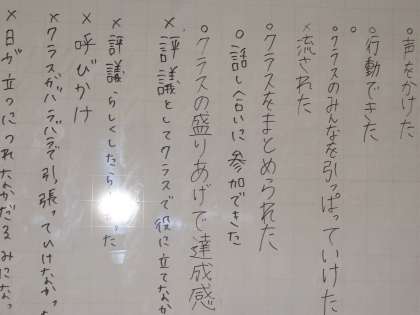 ○声をかけた
○行動できた
○クラスのみんなを引っぱっていけた
×流された
○クラスをまとめられた
○話し合いに参加できた
○クラスの盛りあげで達成感
×評議としてクラスで役に立てなか
×評議らしくしたら った
×呼びかけ
×クラスがバラバラで引張っていけなかっ
×日が立つにつれなかだるみになっ